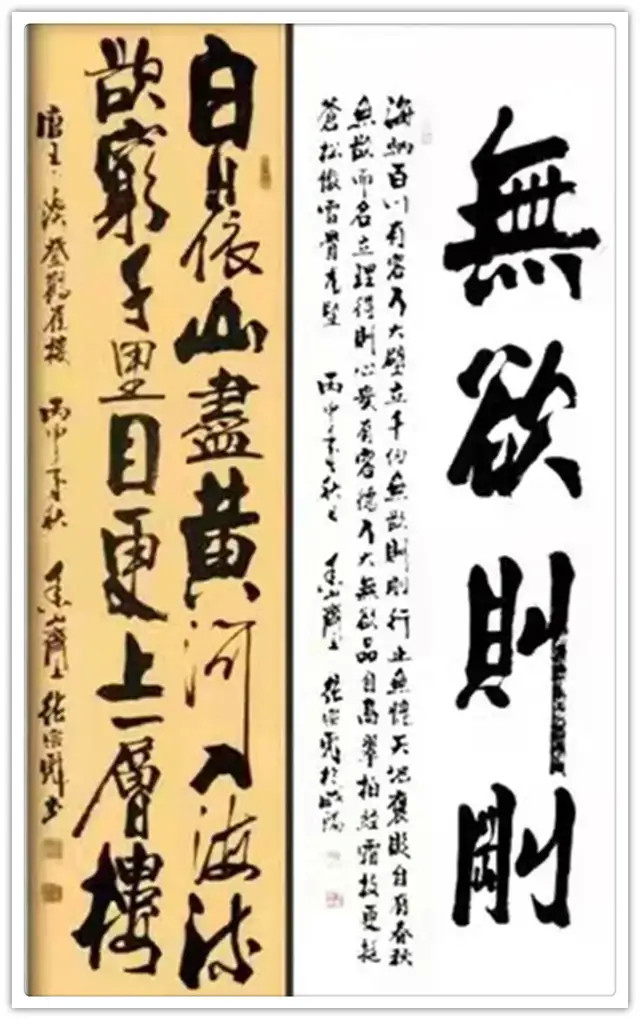 無欲則剛
海納百川有容乃大壁立千仞無欲則剛行止無愧天地褒貶自有春秋
無欲而名立理得則心安有容德乃大無欲品自高翠柏經霜枝更挺
蒼松傲雪骨尤堅 丙申年之秋
白日依山盡黃河入海流
欲窮千里目更上一層樓
唐王之渙登鸛雀樓 丙申年秋